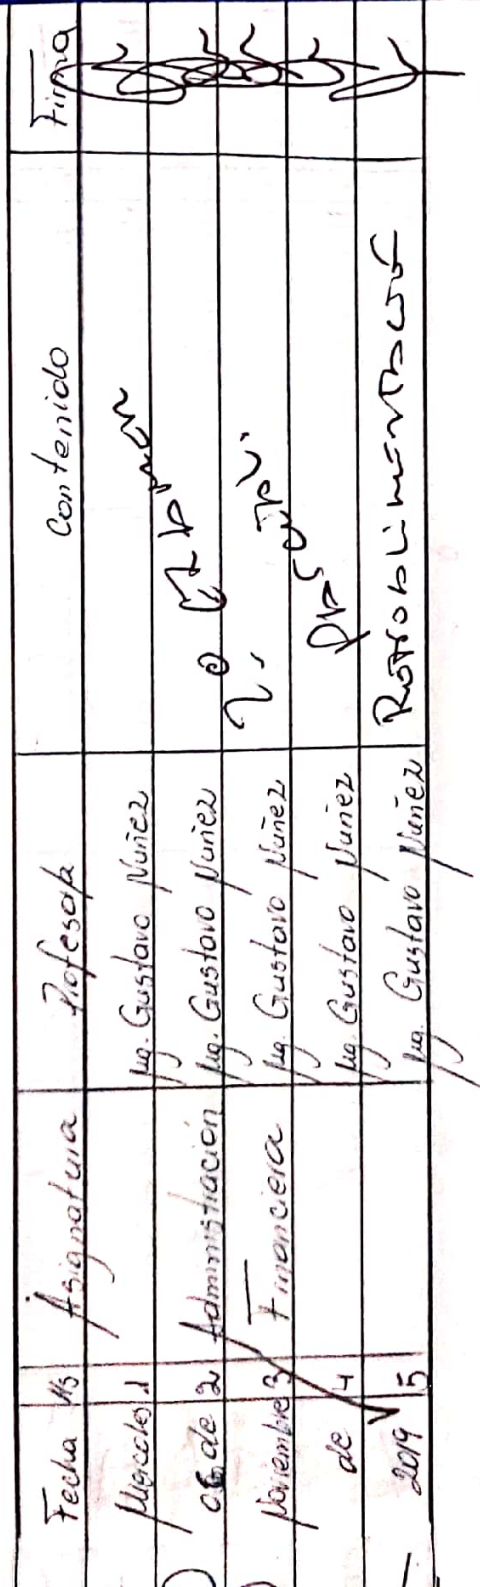 Fecha Hs Asignatura Profesor Contenido Firma
Miércoles 1 Mg. Gustavo Nuñez
06 de 2 Administración Mg. Gustavo Nuñez
Noviembre 3 Financiera Mg. Gustavo Nuñez
de 4 Mg. Gustavo Nuñez
2019 5 Mg. Gustavo Nuñez Retroalimentación